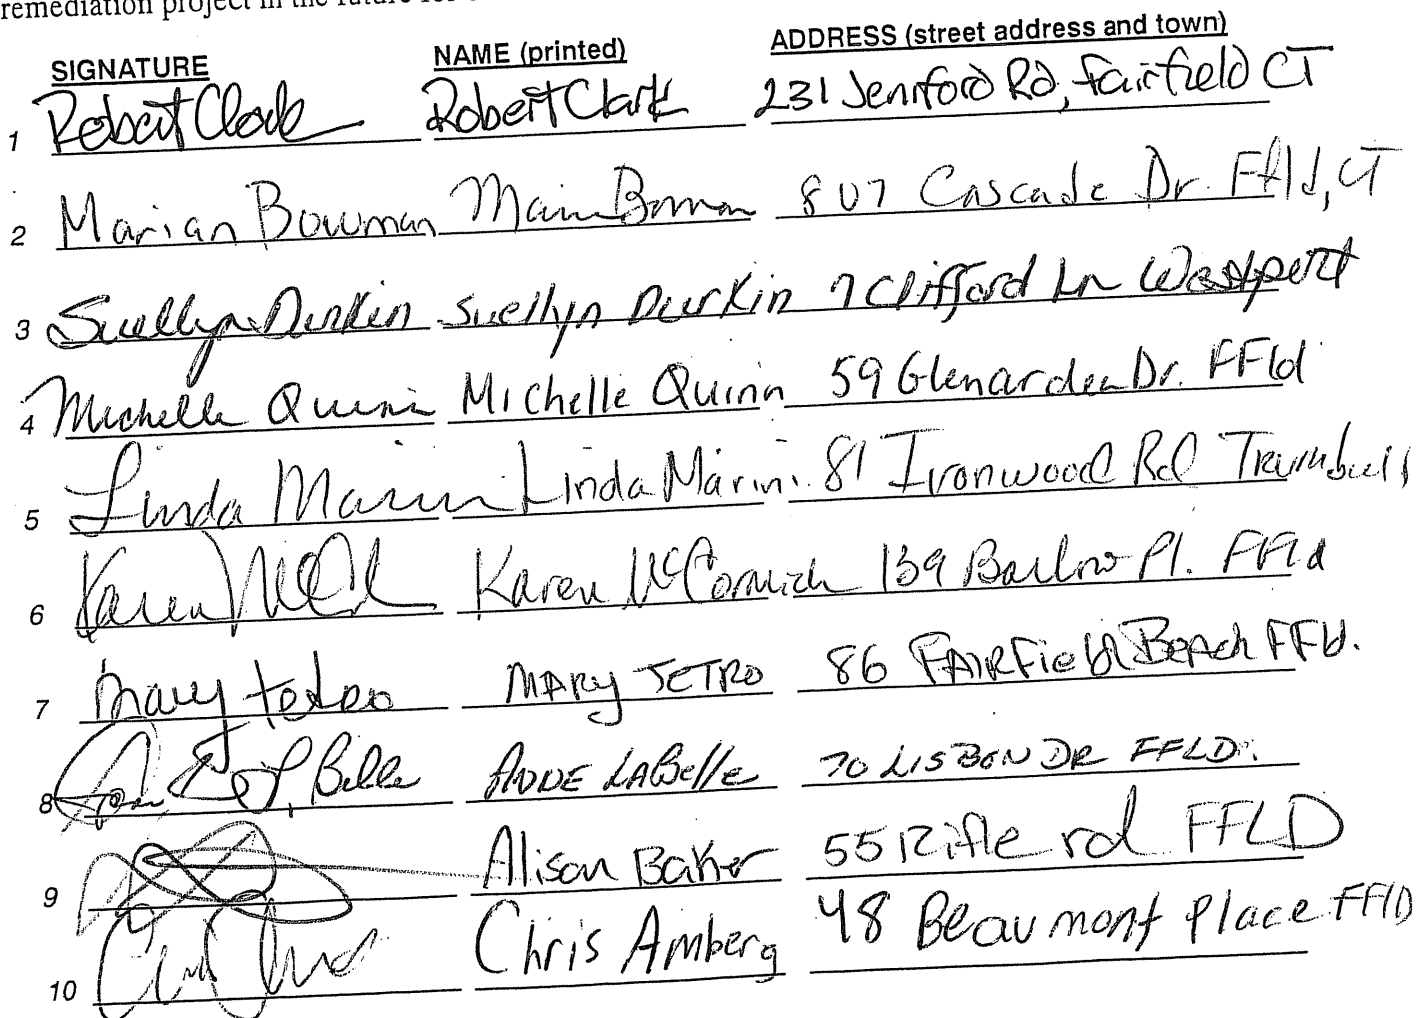 remediation project in the future for
SIGNATURE NAME (printed) ADDRESS (street address and town)
1 Robert Clark Robert Clark 231 Jennford Rd, Fairfield CT
2 Marian Bowman 807 Cascade Dr. Ffld, CT
3 Suellyn Durkin Suellyn Durkin 7 Clifford Ln Westport
4 Michelle Quinn Michelle Quinn 59 Glenarden Dr. FFld
5 Linda Marini Linda Marini 81 Ironwood Rd Trumbull
6 Karen McCormick 139 Barlow Pl. FFld
7 Mary Tetro MARY TETRO 86 FAIRField Beach FFld.
8 ANNE LABelle 70 LISBON DR FFLD.
9 Alison Baker 55 Rifle rd FFLD
10 Chris Amberg 48 Beaumont Place FFlD